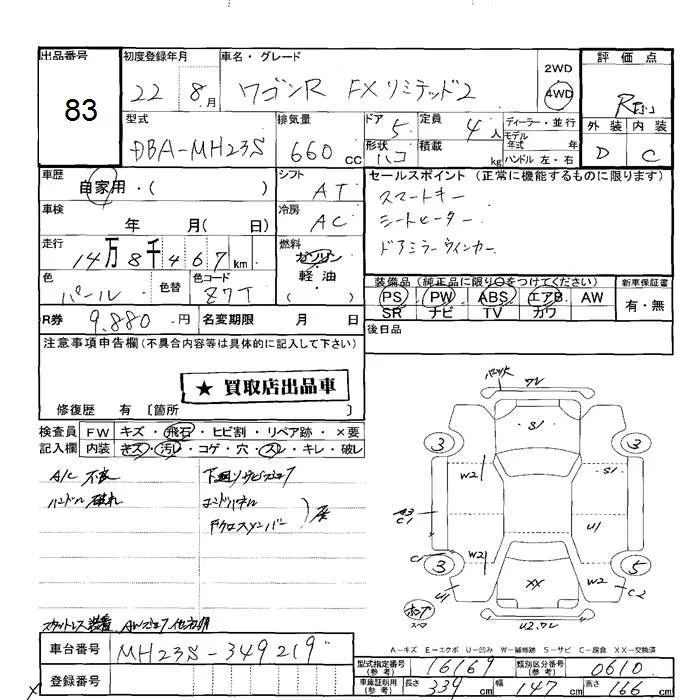 出品番号 初度登録年月 車名・グレード 評価点
83
22 8月 ワゴンR FXリミテッド2 2WD 4WD R
外装 内装
D C
型式 排気量 ドア 定員 ディーラー・並行
DBA-MH23S 660cc 5 4人 モデル年式 年
形状 積載 ハンドル 左・右
ハコ kg
車歴 シフト セールスポイント (正常に機能するものに限ります)
自家用・( ) AT スマートキー
車検 冷房 シートヒーター
年 月( 日) AC ドアミラーウィンカー
走行 燃料
14万8千467km ガソリン
軽・油
( )
色 色替 色コード
パール Z7T
装備品 (純正品に限り○をつけてください) 新車保証書
PS PW ABS エアB AW 有・無
SR ナビ TV カワ
R券 9,880円 名変期限 月 日 後日品
注意事項申告欄(不具合内容等は具体的に記入して下さい)
★ 買取店出品車
修復歴 有 〔箇所 〕
検査員 FW キズ・飛石・ヒビ割・リペア跡・×要
記入欄 内装 キズ・汚レ・コゲ・穴・スレ・キレ・破レ
A/C 不良
ハンドル 破れ
コンドパネル
Fクロスメンバー
3 3 3 5
S1 S1 W2 W2 W2 U1 U1 A3 C1 C2 XX
U2.ワレ
A-キズ E-エクボ U-凹み W-補修跡 S-サビ C-腐食 XX-交換済
車台番号 MH23S-349219
登録番号
型式指定番号(参考) 16169 類別区分番号(参考) 0610
車庫証明用(参考) 長さ 339cm 幅 147cm 高さ 166cm